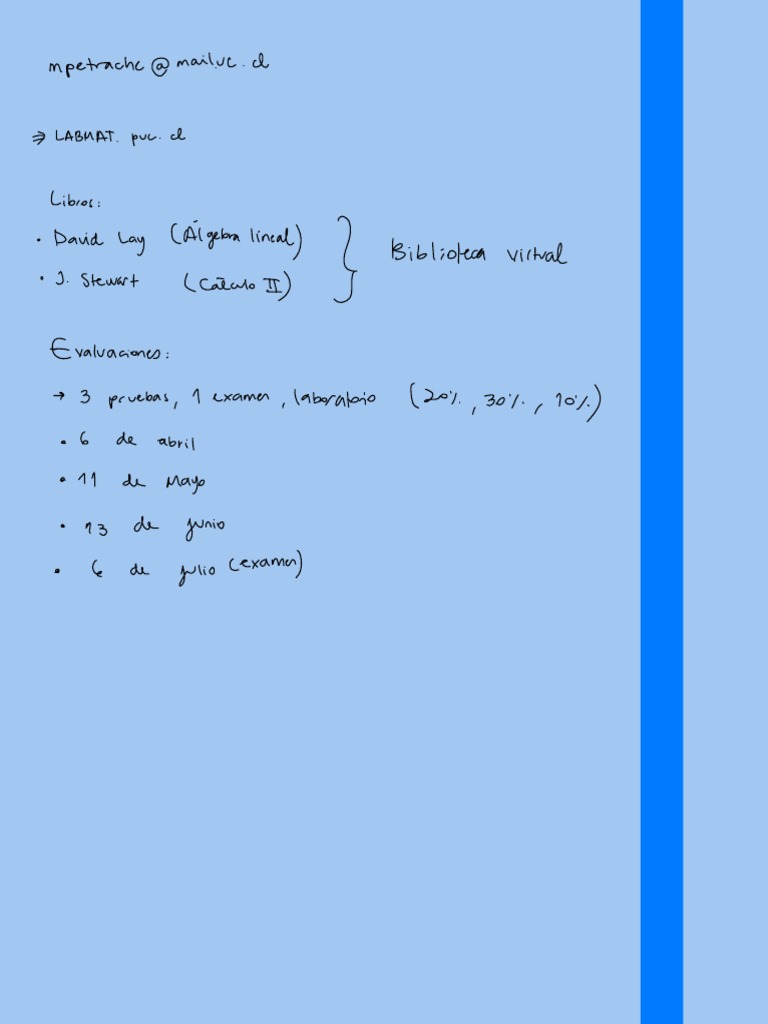 mpetrache@mail.uc.cl
⇒ LABMAT. puc. cl
Libros:
• David Lay (Álgebra lineal)
• J. Stewart (Cálculo II)
} Biblioteca virtual
Evaluaciones:
→ 3 pruebas, 1 examen, laboratorio (20%, 30%, 10%)
• 6 de abril
• 11 de Mayo
• 13 de junio
• 6 de julio (examen)